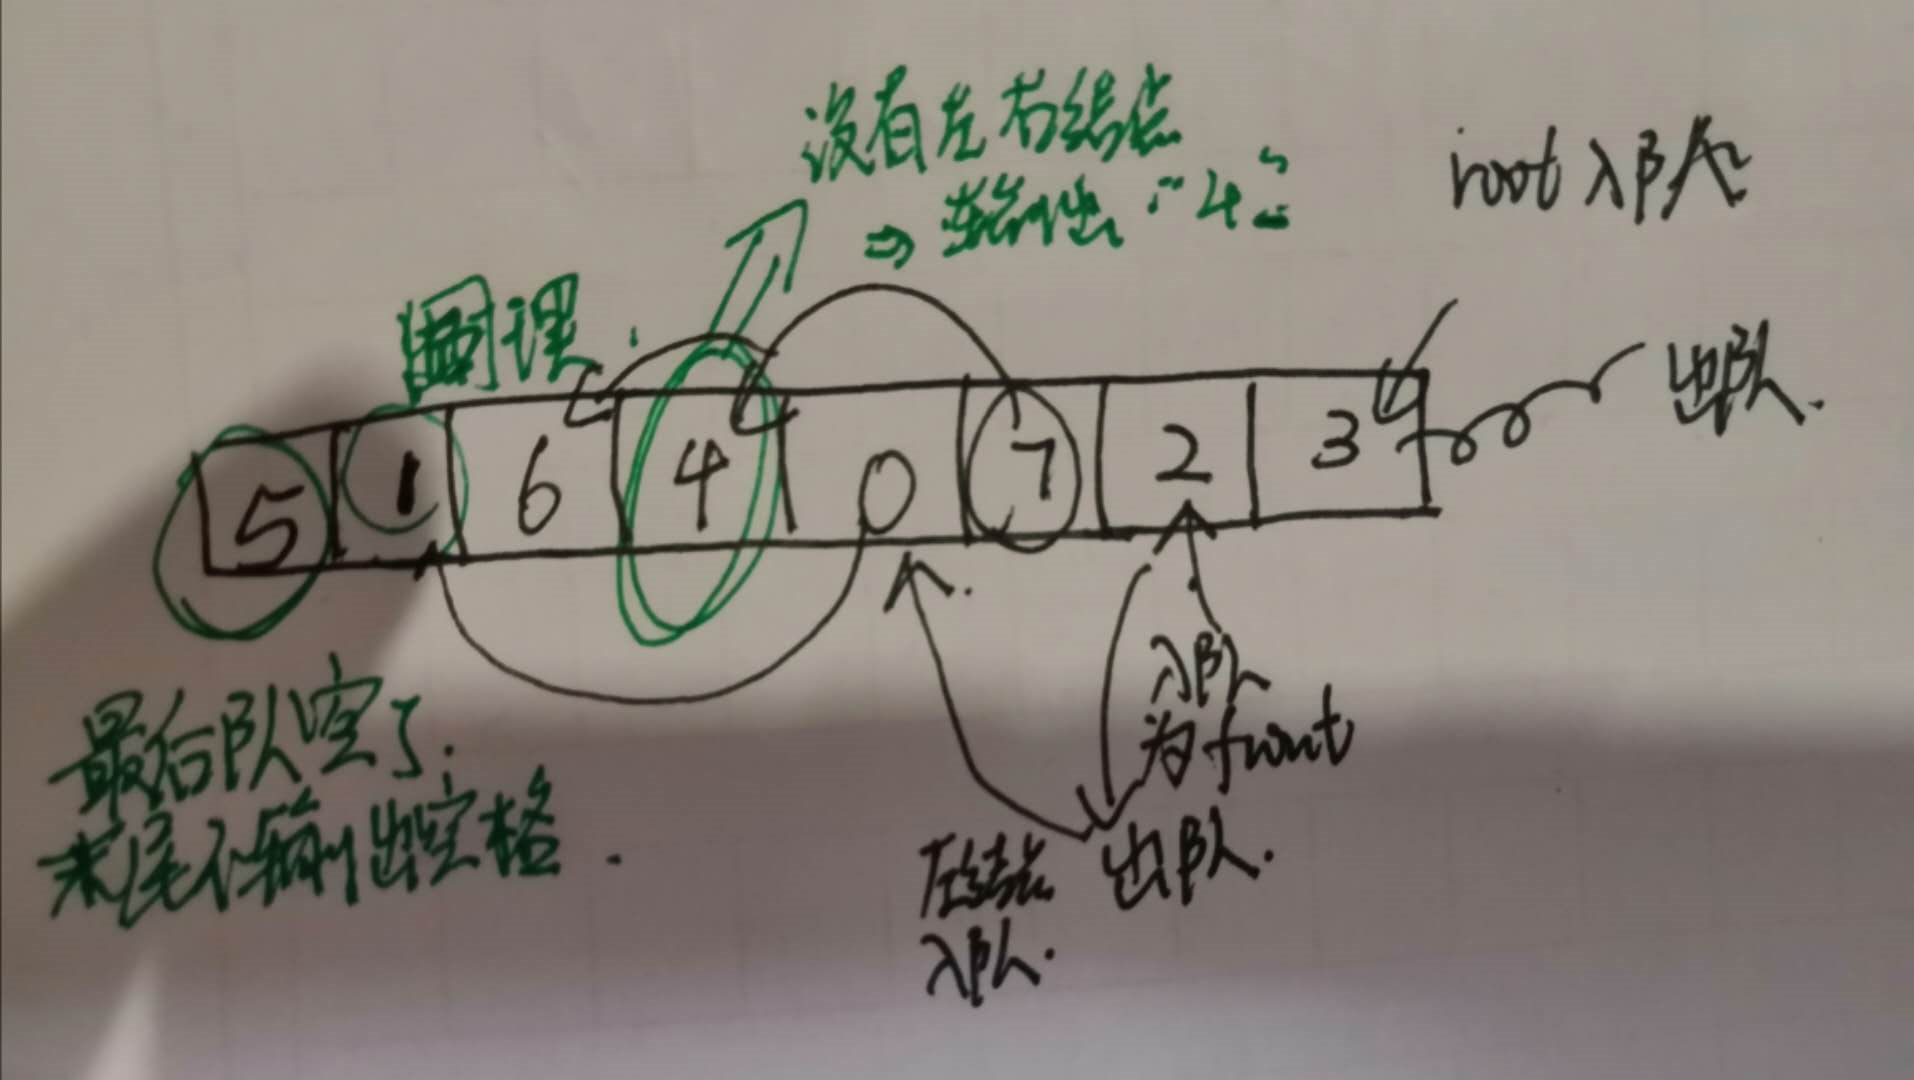 没有左右结点
⇒ 输出 "4"
root 入队
同理
出队.
5 1 6 4 0 7 2 3
入队
为 front
出队.
左结点
入队.
最后队空了.
末尾不输出空格.